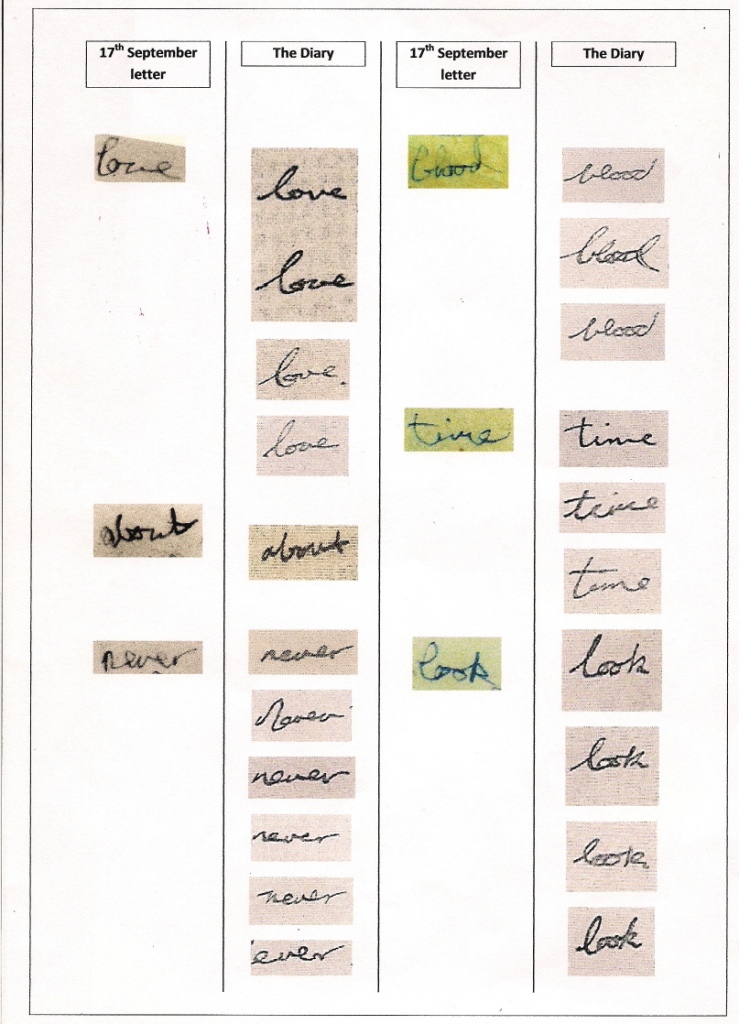 17th September letter
The Diary
17th September letter
The Diary
love
love
love
love.
love
about
about
never
never
Never
never
never
never
ever
blood
blood
blood
blood
time
time
time
time
look
look
look
look
look